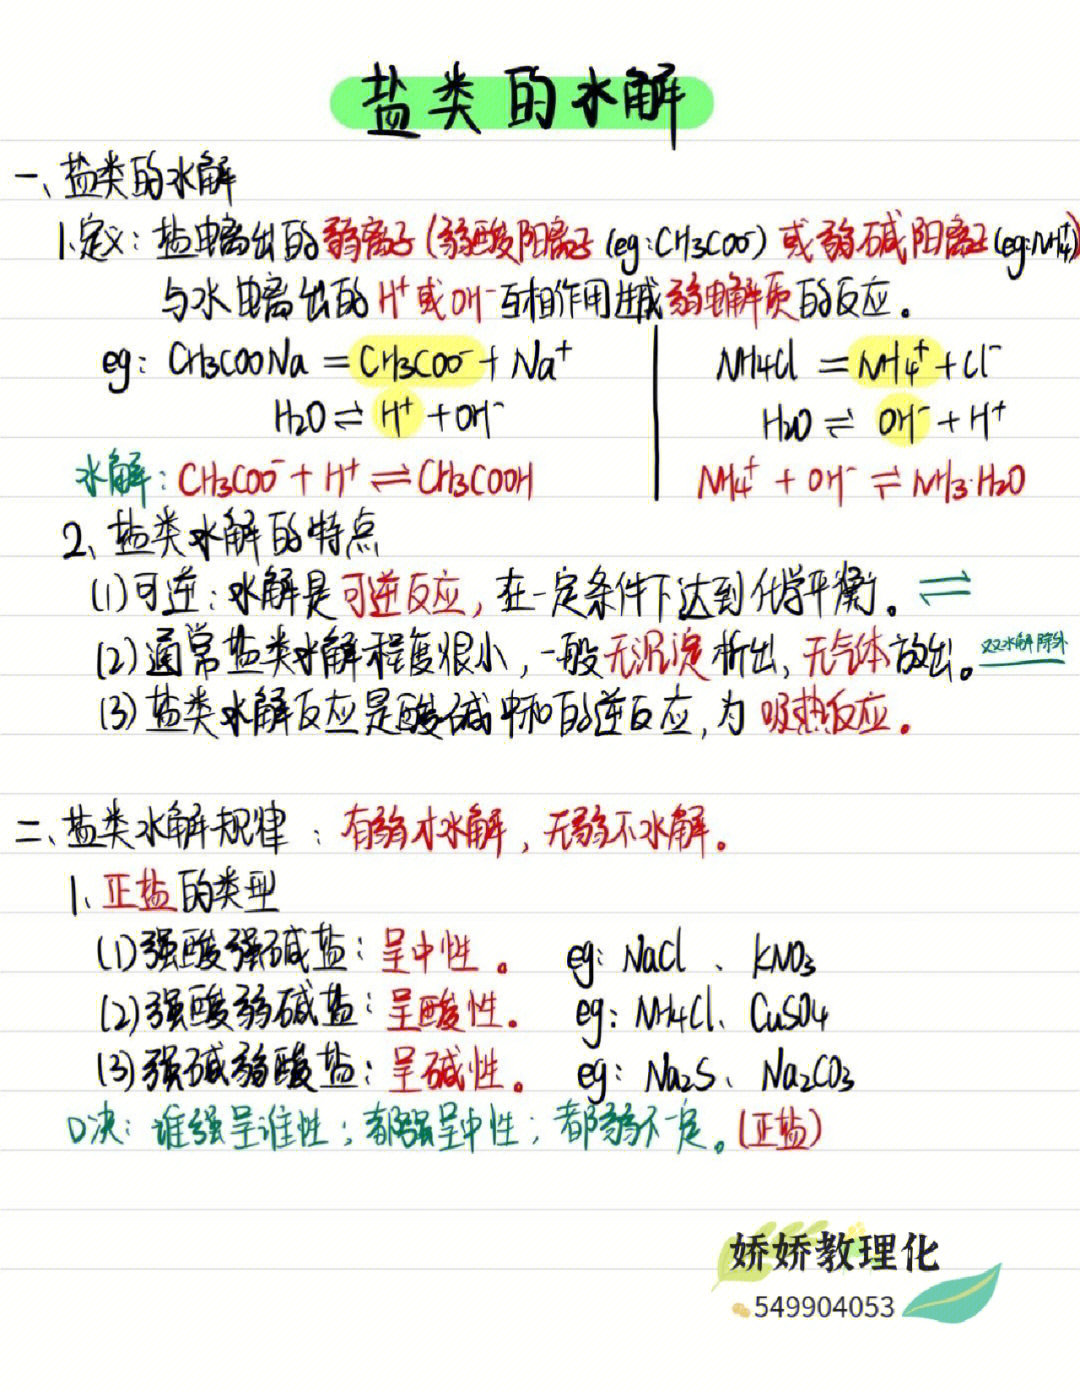 盐类的水解
一、盐类的水解
1.定义：盐电离出的弱离子(弱酸阴离子(eg:CH3COO⁻)或弱碱阳离子(eg:NH4⁺)
与水电离出的H⁺或OH⁻互相作用生成弱电解质的反应。
eg：CH3COONa = CH3COO⁻ + Na⁺
H2O ⇌ H⁺ + OH⁻
水解：CH3COO⁻ + H⁺ ⇌ CH3COOH
NH4Cl = NH4⁺ + Cl⁻
H2O ⇌ OH⁻ + H⁺
NH4⁺ + OH⁻ ⇌ NH3·H2O
2、盐类水解的特点
(1)可逆：水解是可逆反应，在一定条件下达到化学平衡。⇌
(2)通常盐类水解程度很小，一般无沉淀析出、无气体放出。双水解除外
(3)盐类水解反应是酸碱中和的逆反应，为吸热反应。
二、盐类水解规律：有弱才水解，无弱不水解。
1、正盐的类型
(1)强酸强碱盐：呈中性。 eg：NaCl、KNO3
(2)强酸弱碱盐：呈酸性。 eg：NH4Cl、CuSO4
(3)强碱弱酸盐：呈碱性。 eg：Na2S、Na2CO3
口决：谁强呈谁性；都强呈中性；都弱不一定。(正盐)
娇娇教理化
549904053